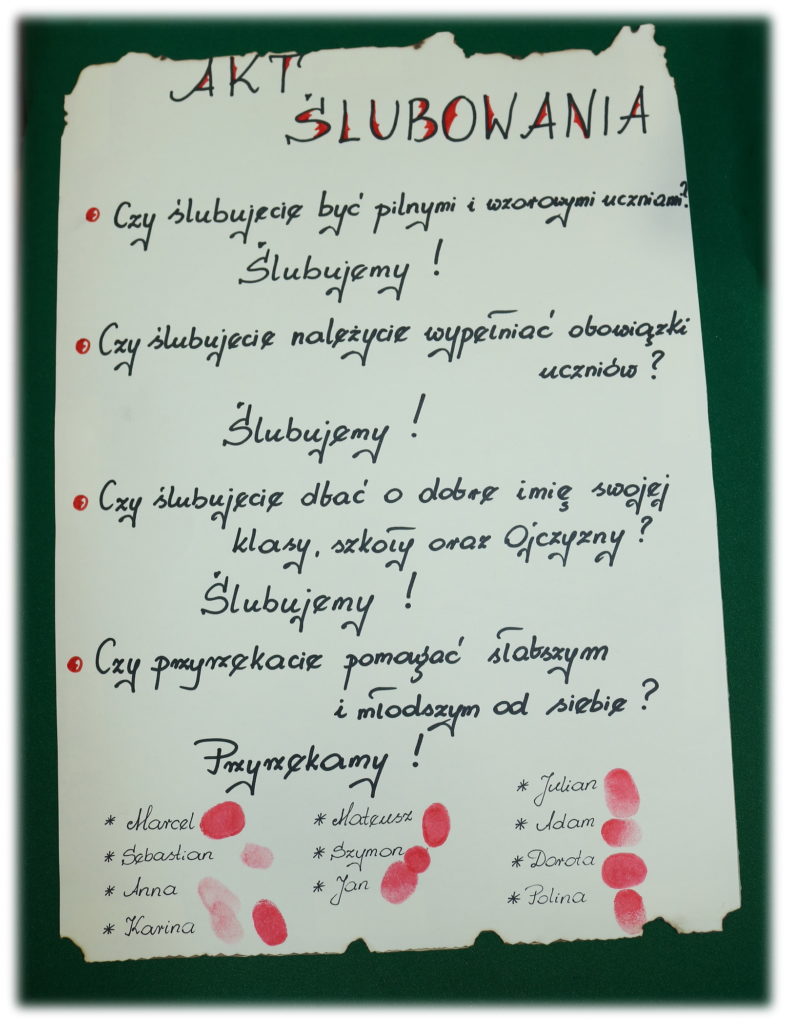 AKT
ŚLUBOWANIA
Czy ślubujecie być pilnymi i wzorowymi uczniami?
Ślubujemy!
Czy ślubujecie należycie wypełniać obowiązki
uczniów?
Ślubujemy!
Czy ślubujecie dbać o dobre imię swojej
klasy, szkoły oraz Ojczyzny?
Ślubujemy!
Czy przyrzekacie pomagać słabszym
i młodszym od siebie?
Przyrzekamy!
* Marcel
* Sebastian
* Anna
* Karina
* Mateusz
* Szymon
* Jan
* Julian
* Adam
* Dorota
* Polina